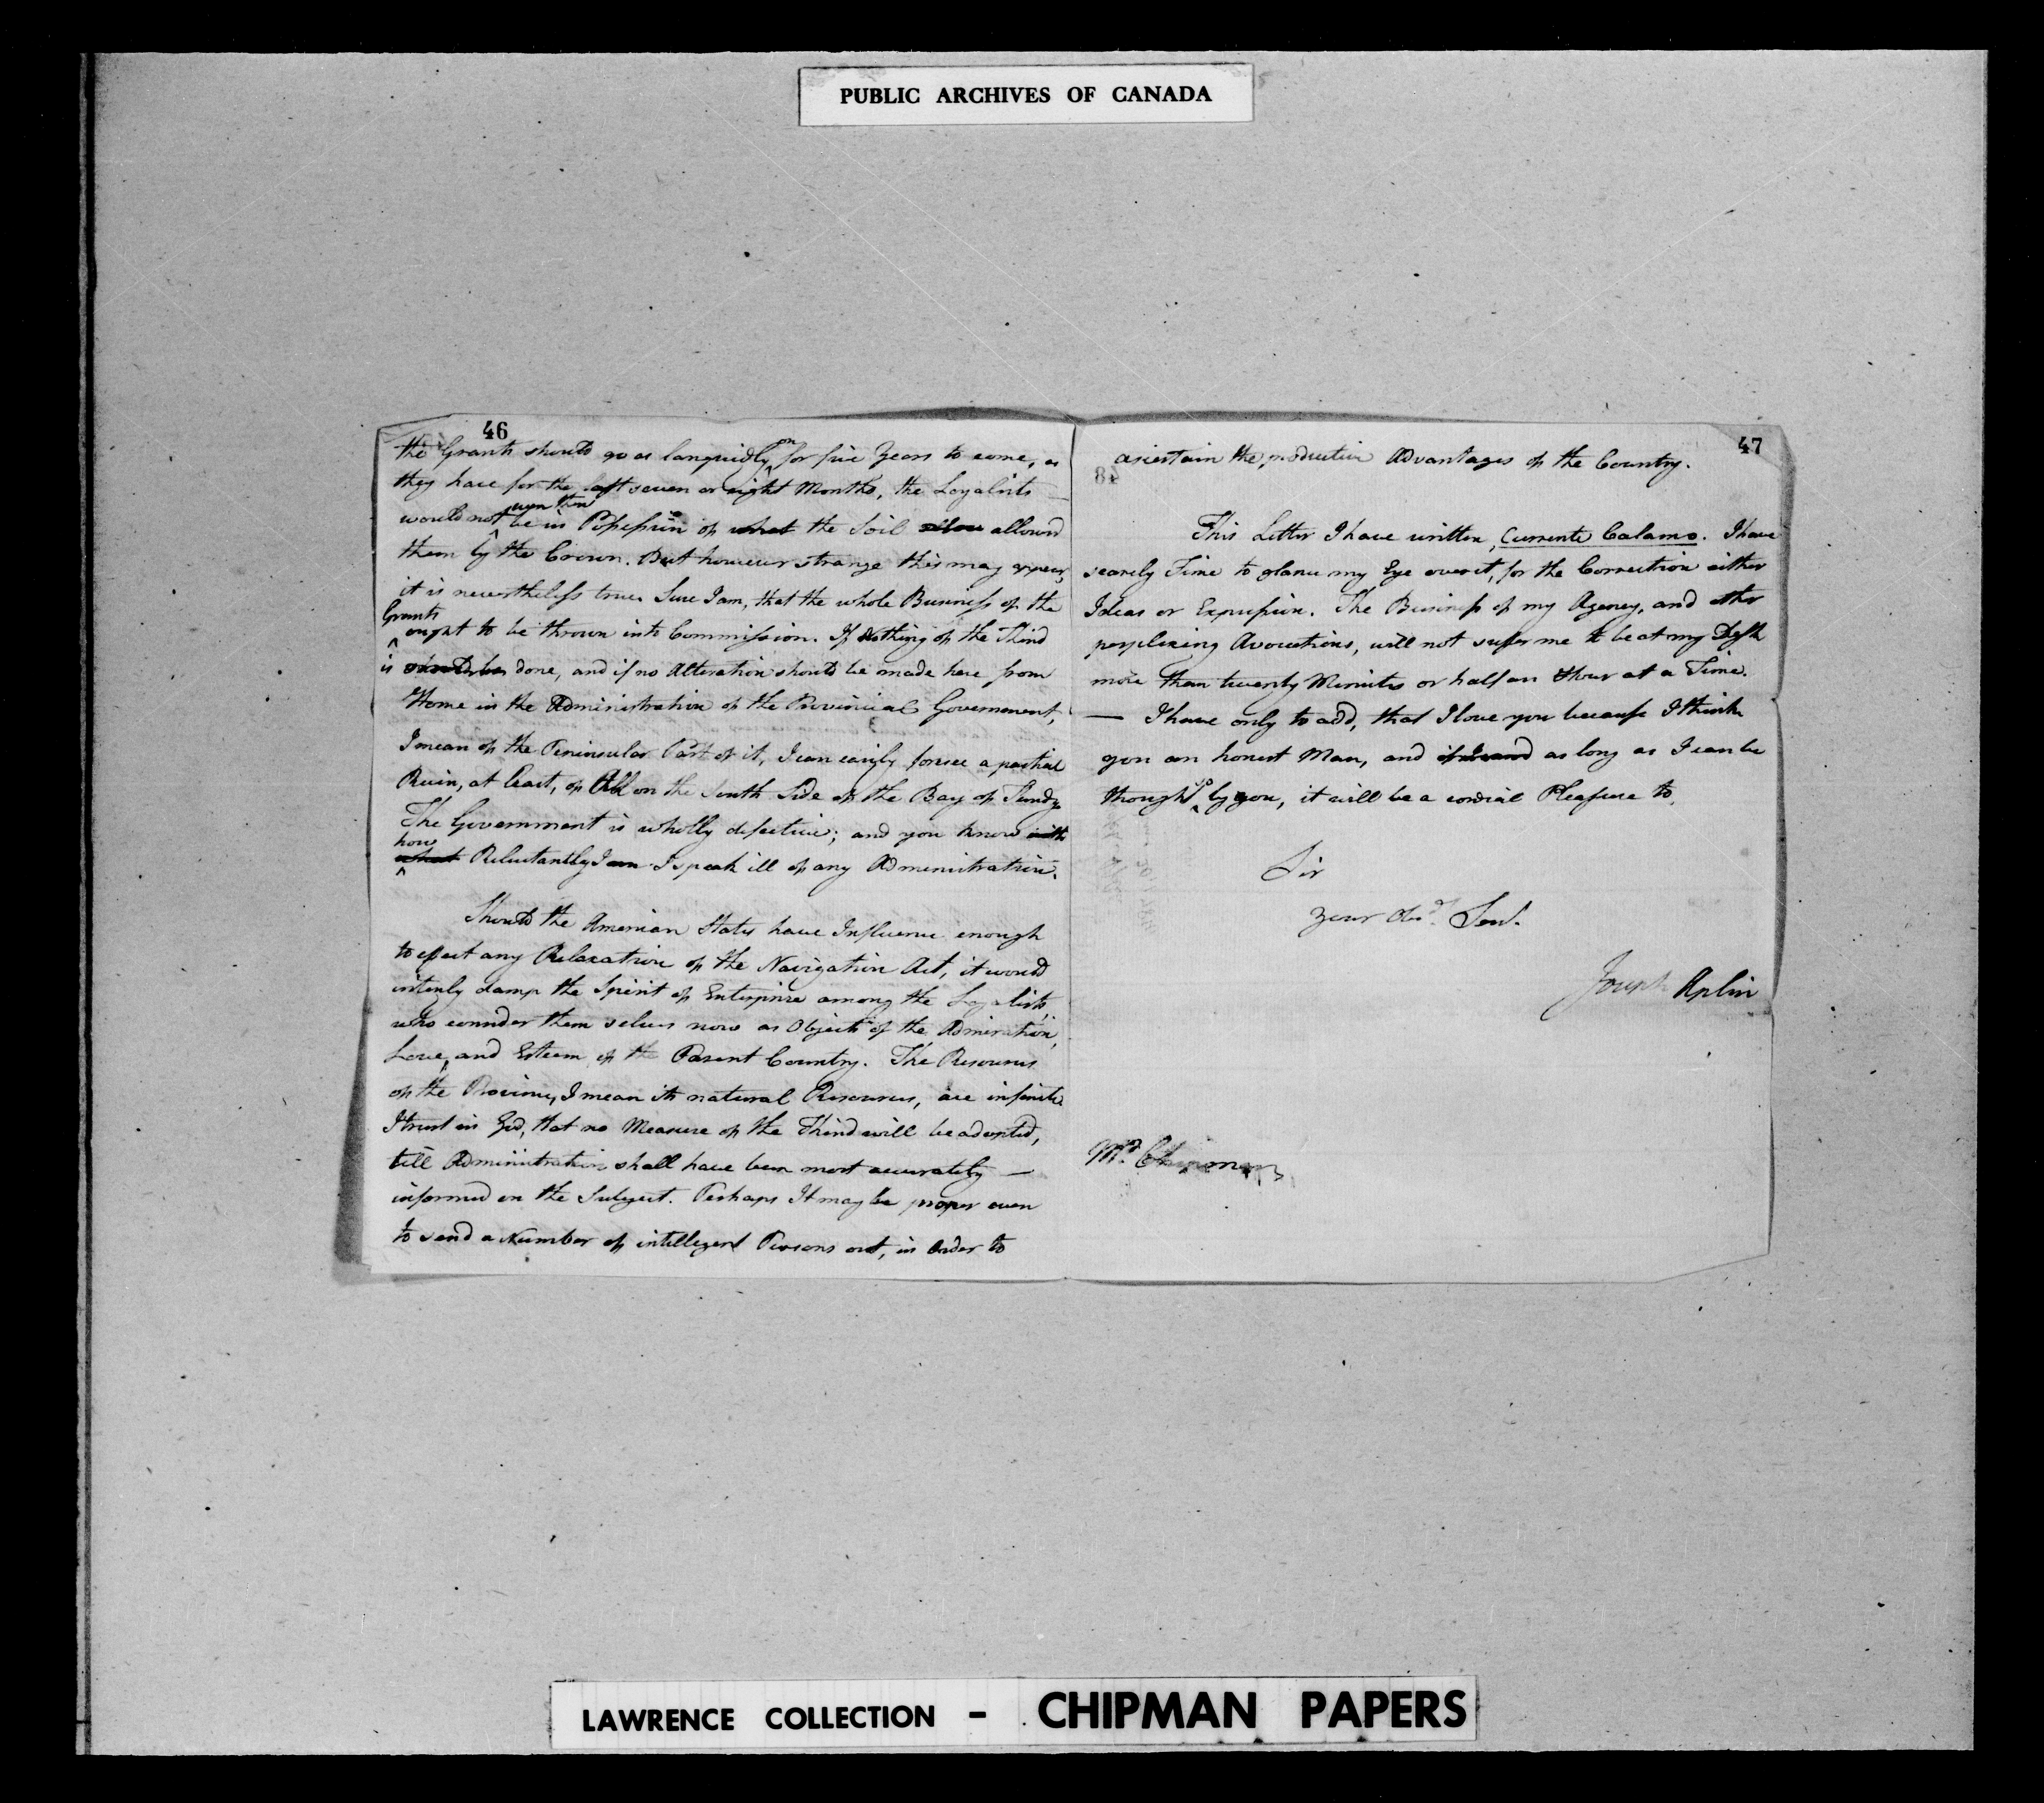 PUBLIC ARCHIVES OF CANADA
46
the Grants should go as languidly on for five Years to come, as
they have for the last seven or eight Months, the Loyalists
would not even then be in Possession of what the Soil allowd
them by the Crown. But however strange this may appear,
it is nevertheless true. Sure I am, that the whole Business of the
Grants ought to be thrown into Commission. If Nothing of the Kind
is should be done, and if no Alteration should be made here from
Home in the Administration of the Provincial Government,
I mean of the Peninsular Part of it, I can easily forsee a partial
Ruin, at least, of All on the South Side of the Bay of Fundy
The Government is wholly defective; and you know with
how what Reluctantly I am I speak ill of any Administration.
Should the American States have Influence enough
to effect any Relaxation of the Navigation Act, it would
intirely damp the Spirit of Enterprize among the Loyalists,
who consider them selves now as Objects of the Admiration,
Love, and Esteem of the Parent Country. The Resources
of the Province, I mean its natural Resources, are infinite
I trust in God, that no Measure of the Kind will be adopted,
till Administration shall have been most accurately —
informed on the Subject. Perhaps It may be proper even
to send a Number of intelligent Persons out, in Order to
47
ascertain the productive Advantages of the Country.
48
This Letter I have written, Currente Calamo. I have
scarcely Time to glance my Eye over it, for the Correction either
Ideas or Expression. The Business of my Agency, and other
perplexing Avocations, will not suffer me to be at my Desk
more than twenty Minutes or half an Hour at a Time.
— I have only to add, that I love you because I think
you an honest Man, and as long as I can be
thought so by you, it will be a cordial Pleasure to,
Sir
your Obd. Sert.
Joseph Aplin
Mr. Chipman
LAWRENCE COLLECTION - CHIPMAN PAPERS